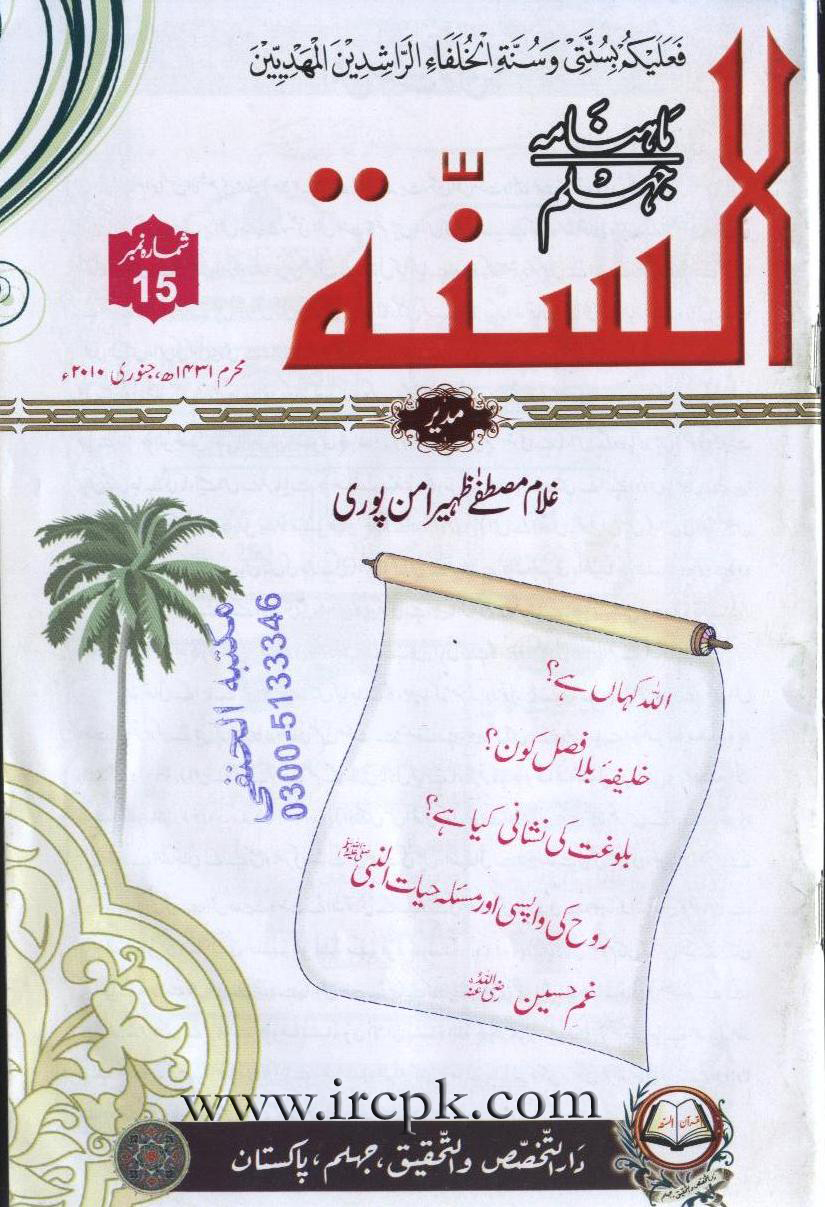 فَعَلَيْكُمْ بِسُنَّتِيْ وَسُنَّةِ الْخُلَفَاءِ الرَّاشِدِيْنَ الْمَهْدِيِّيْنَ
ماہنامہ
جہلم
السنّة
شمارہ نمبر
15
محرم ۱۴۳۱ھ، جنوری ۲۰۱۰ء
مدیر
غلام مصطفٰے ظہیر امن پوری
مکتبہ الحنفی
0300-5133346
اللہ کہاں ہے؟
خلیفۂ بلا فصل کون؟
بلوغت کی نشانی کیا ہے؟
روح کی واپسی اور مسئلہ حیات النبی ﷺ
غم حسین رضی اللہ عنہ
www.ircpk.com
دَارالتّخصّص والتّحقیق، جہلم، پاکستان
قرآن السنة